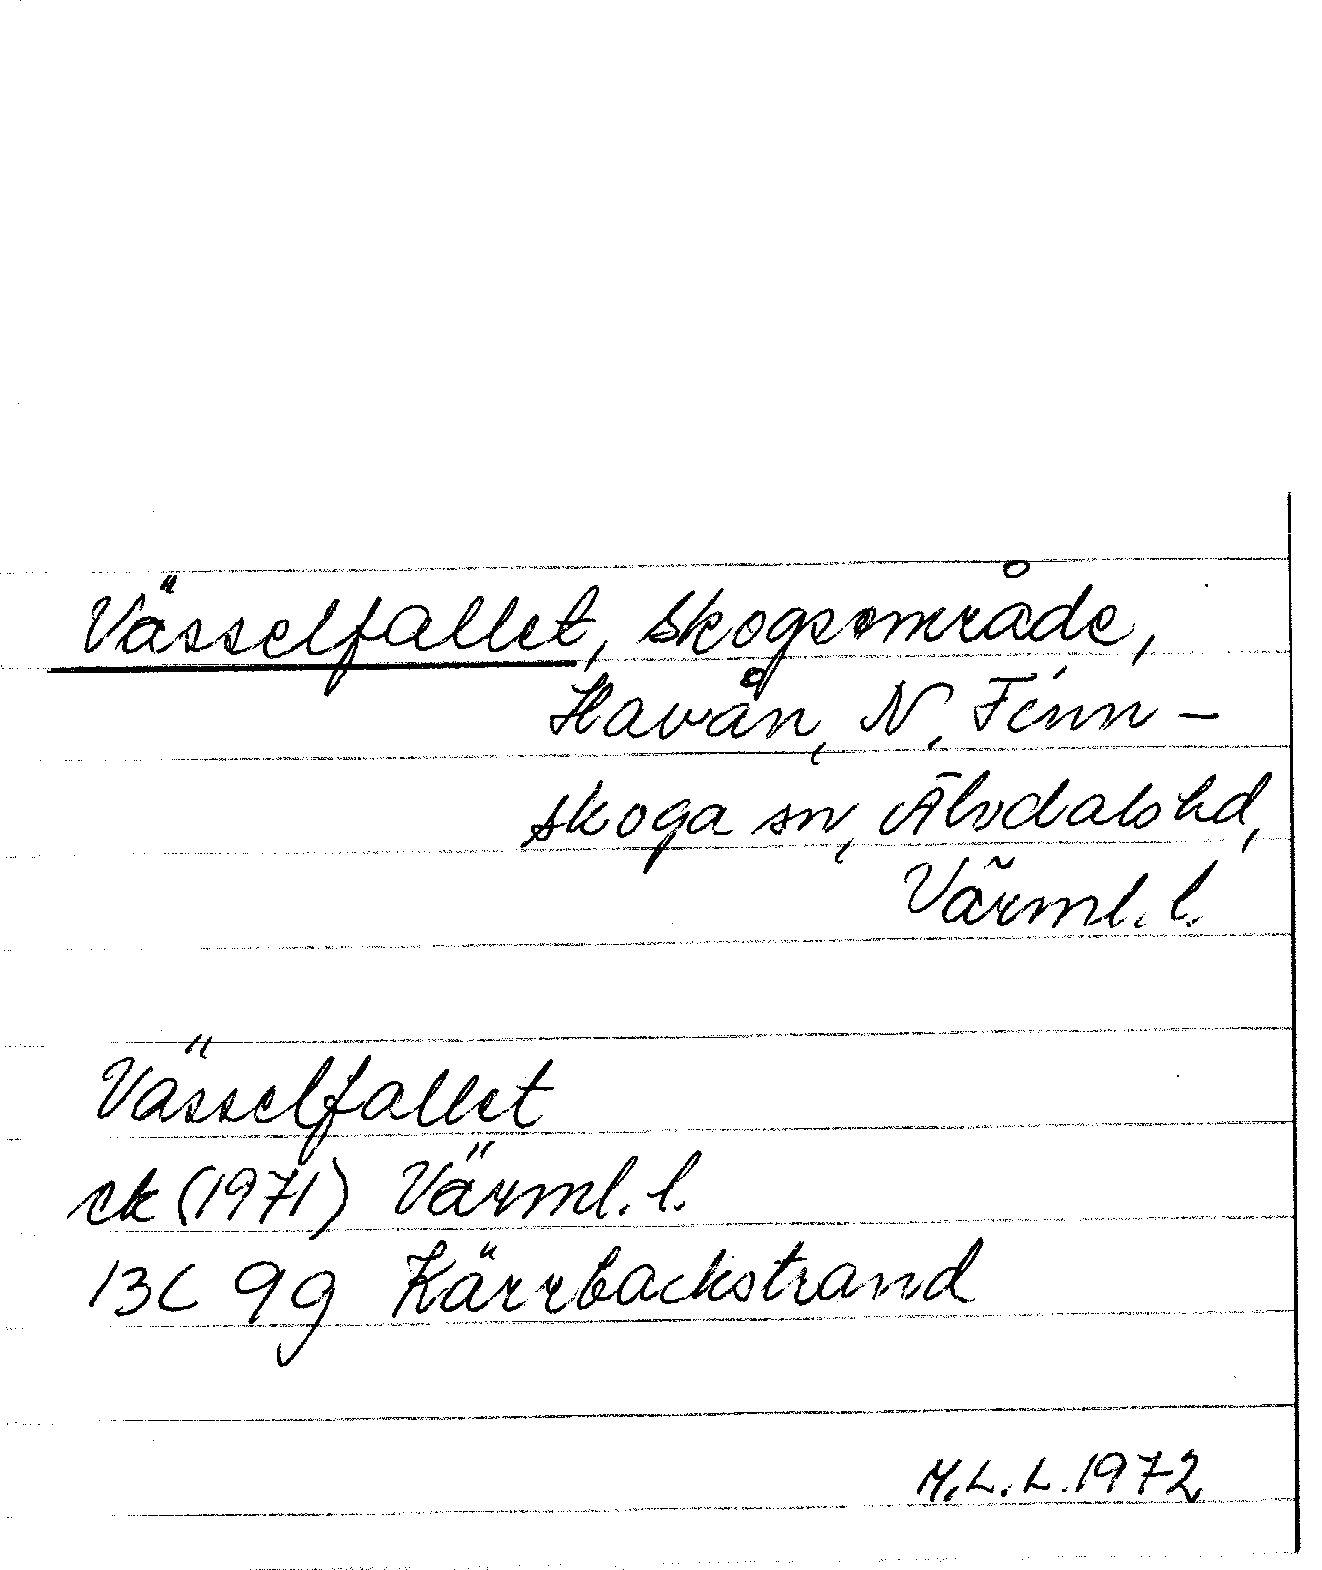 Vässelfallet, skogsområde,
Havån, N. Finn-
skoga sn, Älvdals hd,
Värml. l.
Vässelfallet
ek (1971) Värml. l.
13C 9g Kärrbackstrand
M.L.L. 1972